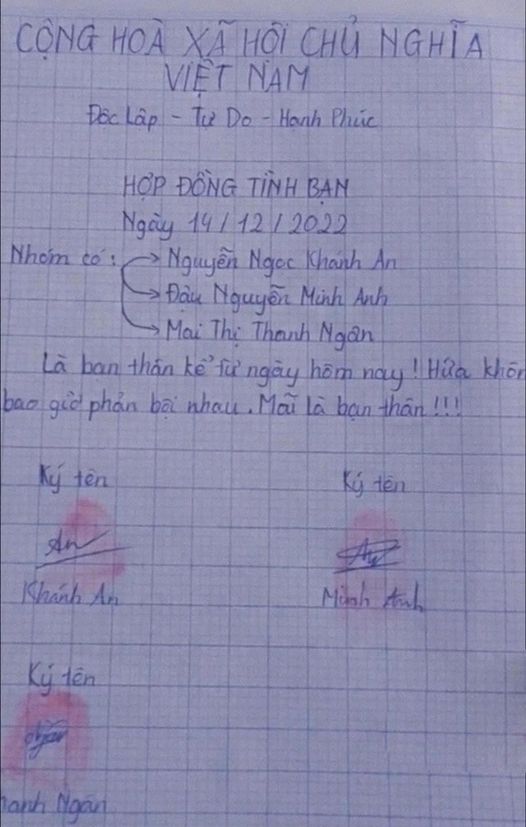 CỘNG HOÀ XÃ HỘI CHỦ NGHĨA
VIỆT NAM
Độc Lập - Tự Do - Hạnh Phúc
HỢP ĐỒNG TÌNH BẠN
Ngày 14/12/2022
Nhóm có: → Nguyễn Ngọc Khánh An
→ Đậu Nguyễn Minh Anh
→ Mai Thị Thanh Ngân
Là bạn thân kể từ ngày hôm nay! Hứa khôn
bao giờ phản bội nhau. Mãi là bạn thân!!!
Ký tên Ký tên
An
Khánh An Minh Anh
Ký tên
hanh Ngân